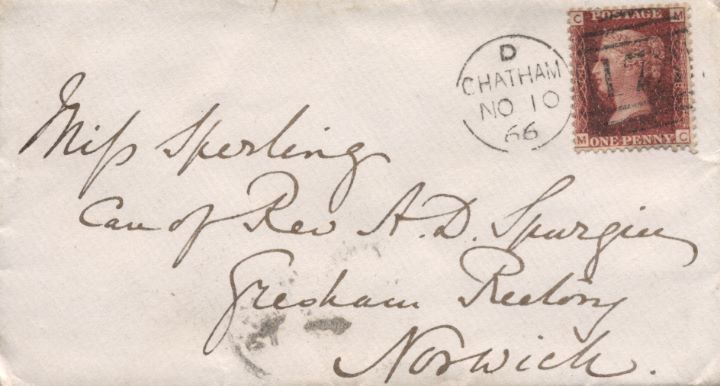 D
CHATHAM
NO 10
66
C POSTAGE M
17
M ONE PENNY C
Miss Sperling
Care of Rev A. D. Spurgin
Gresham Rectory
Norwich.